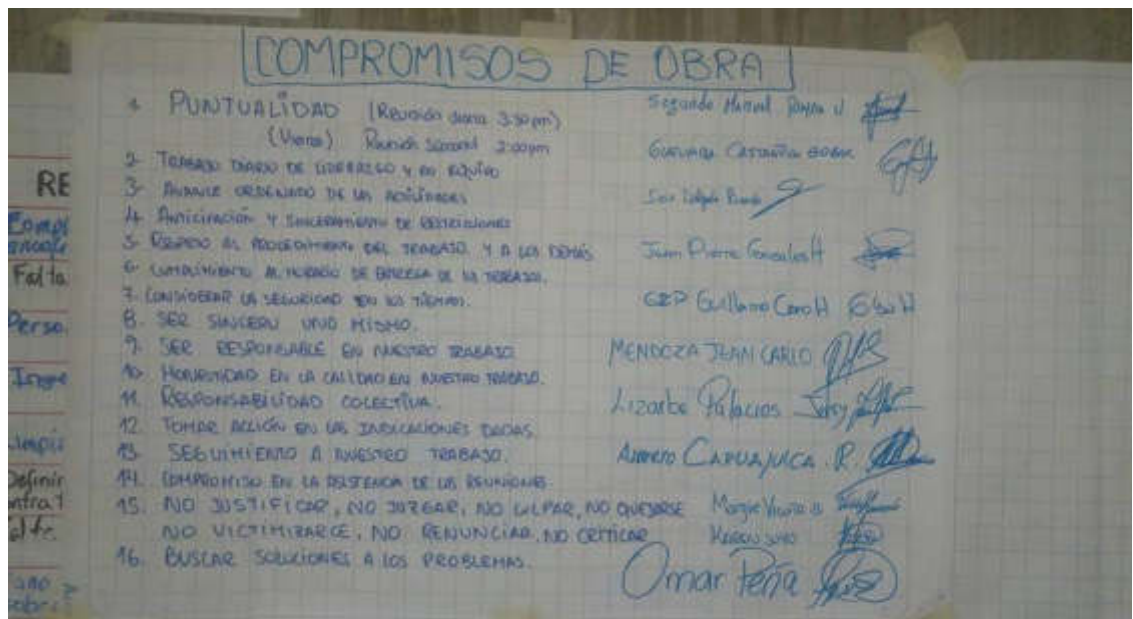 COMPROMISOS DE OBRA
1. PUNTUALIDAD (Reunión diaria 3:30 pm)
(Viernes) Reunión semanal 2:00pm
2- TRABAJO DIARIO DE LIDERAZGO Y EN EQUIPO
3- AVANCE ORDENADO DE LAS ACTIVIDADES
4- ANTICIPACIÓN Y SINCERAMIENTO DE RESTRICCIONES
5- RESPETO AL PROCEDIMIENTO DEL TRABAJO Y A LOS DEMÁS
6- CUMPLIMIENTO AL HORARIO DE ENTREGA DE LOS TRABAJOS.
7. CONSIDERAR LA SEGURIDAD EN LOS TIEMPOS.
8. SER SINCERO UNO MISMO.
9. SER RESPONSABLE EN NUESTRO TRABAJO
10. HONESTIDAD EN LA CALIDAD EN NUESTRO TRABAJO.
11. RESPONSABILIDAD COLECTIVA.
12. TOMAR ACCIÓN EN LAS INDICACIONES DADAS.
13. SEGUIMIENTO A NUESTRO TRABAJO.
14. COMPROMISO EN LA ASISTENCIA DE LAS REUNIONES
15. NO JUSTIFICAR, NO JUZGAR, NO CULPAR, NO QUEJARSE
NO VICTIMIZARCE, NO RENUNCIAR, NO CRITICAR
16. BUSCAR SOLUCIONES A LOS PROBLEMAS.
Segundo Manuel
GUEVARA CASTAÑEDA
Jean Pierre Gonzales H
Guillermo Caro H
MENDOZA JEAN CARLO
Lizarbe Palacios
CAPUAJUCA R.
Margie
KAREN
Omar Peña
RE
Falta
Perso
Limpi
Definir